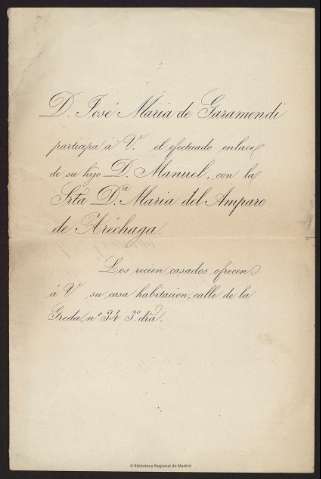 D. José Maria de Garamendi
participa á V. el efectuado enlace
de su hijo D. Manuel, con la
Srta. D.ª Maria del Amparo
de Aréchaga.
Los recien casados ofrecen
á V. su casa habitacion, calle de la
Greda, nº 34 3º dra.
© Biblioteca Regional de Madrid